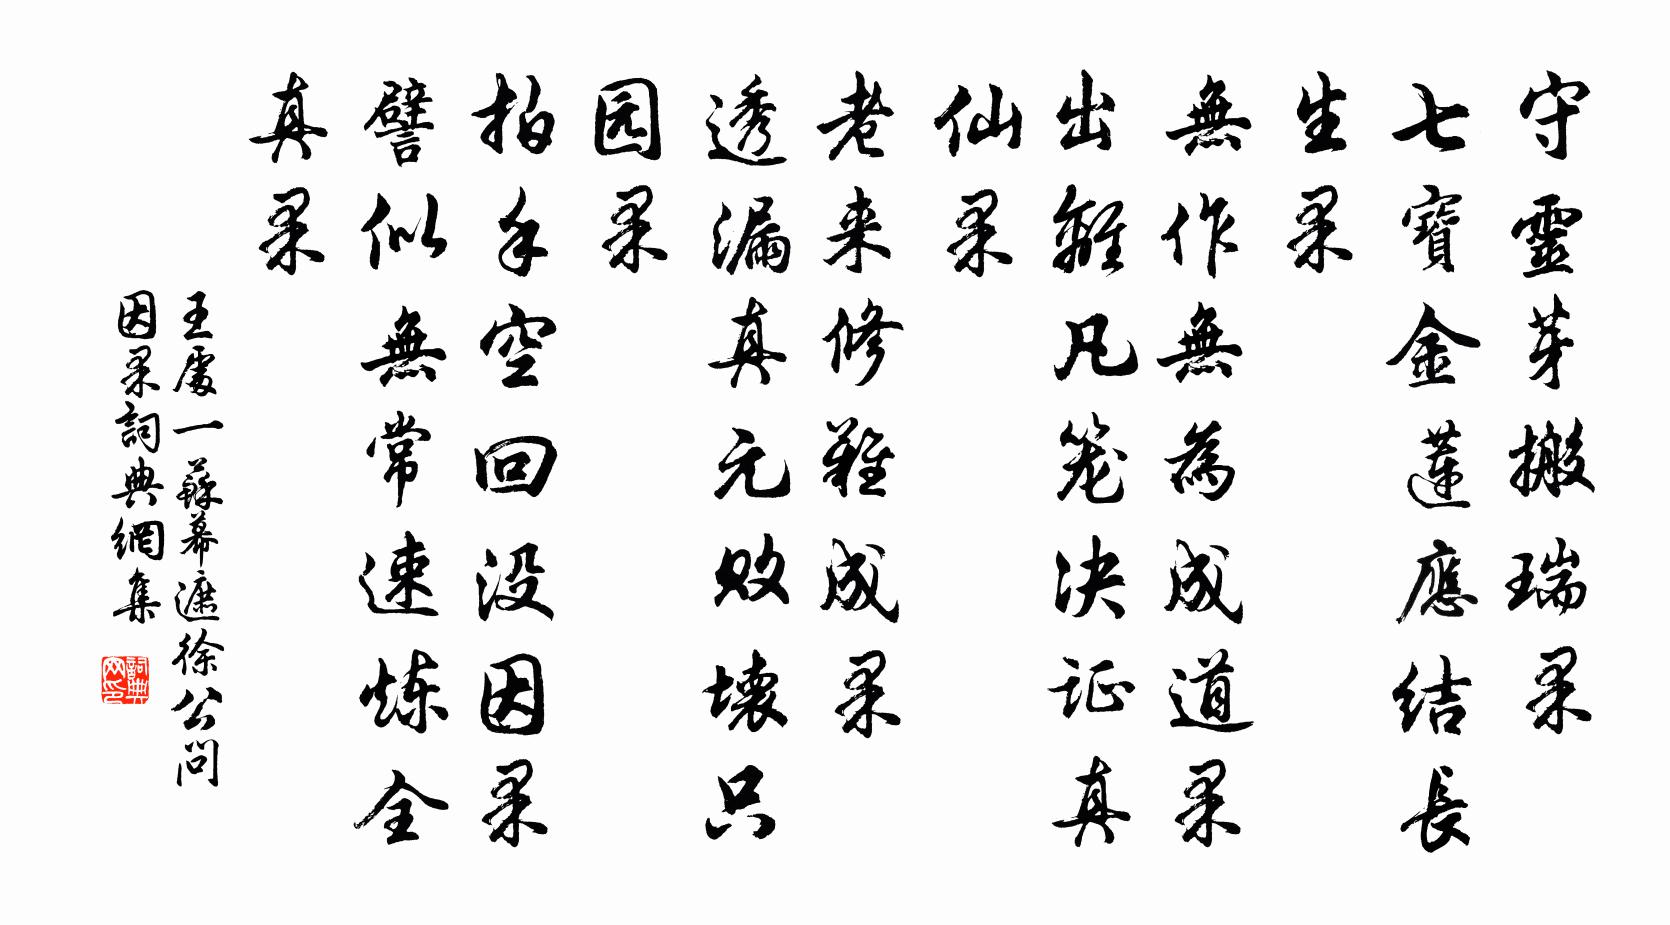 守靈芽搬瑞果
七寶金蓮應結長
生果
無作無為成道果
出離凡笼决证真
仙果
老来修難成果
透漏真元败壞只
园果
拍手空回没因果
譬似無常速炼全
真果
王處一蘇幕遮徐公問
因果詞典網集
詞典网印